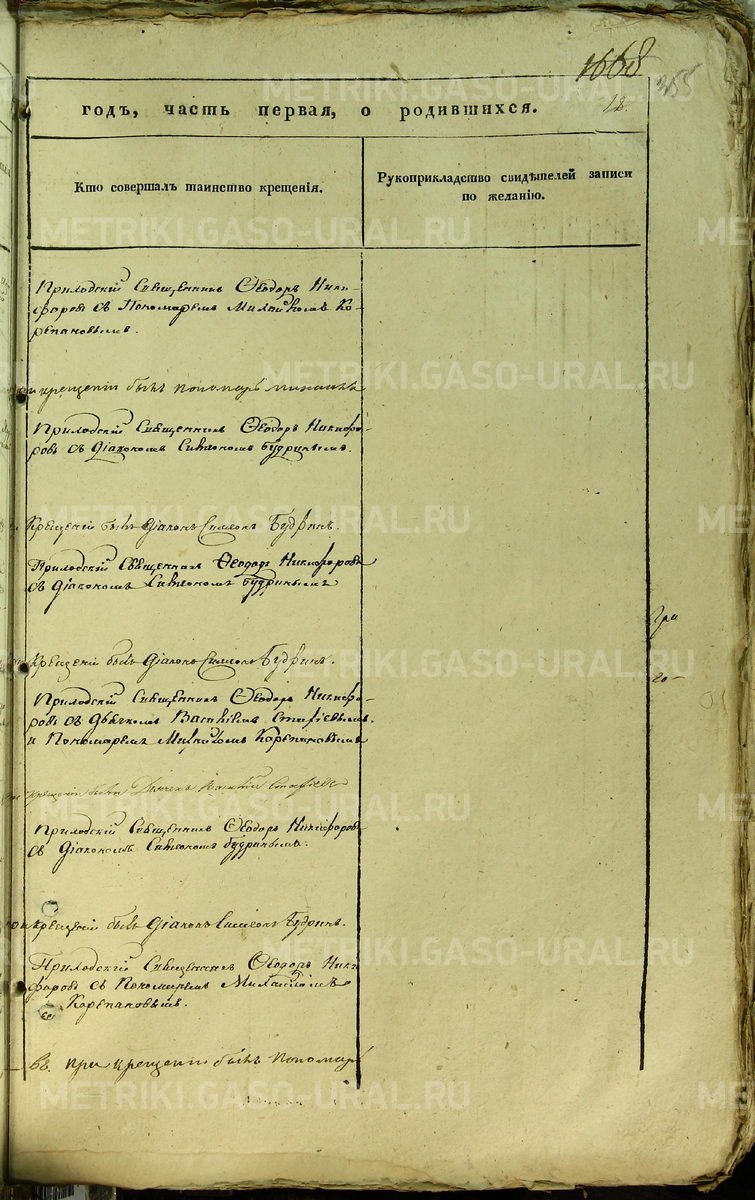 1668
355
18.
годъ, часть первая, о родившихся.
Кто совершалъ таинство крещенія.
Рукоприкладство свидѣтелей записи
по желанію.
Приходскій Священникъ Ѳеодоръ Ники-
форовъ съ Пономаремъ Михайломъ Ко-
репановымъ.
и крещеніи былъ пономарь
Приходскій Священникъ Ѳеодоръ Никифо-
ровъ съ Діакономъ Симеономъ Будринымъ.
Крещеніи былъ Діаконъ Симеонъ Будринъ.
Приходскій Священникъ Ѳеодоръ Никифоровъ
съ Діакономъ Симеономъ Будринымъ
Крещеніи былъ Діаконъ Симеонъ Будринъ.
Приходскій Священникъ Ѳеодоръ Никифо-
ровъ съ Дьячкомъ Василіемъ
и Пономаремъ Михайломъ Корепановымъ
крещеніи былъ Дьячекъ Василій
Приходскій Священникъ Ѳеодоръ Никифоровъ
съ Діакономъ Симеономъ Будринымъ.
крещеніи былъ Діаконъ Симеонъ Будринъ.
Приходскій Священникъ Ѳеодоръ Ники
форовъ съ Пономаремъ Михайломъ
Корепановымъ.
въ. при крещеніи былъ пономарь
METRIKI.GASO-URAL.RU